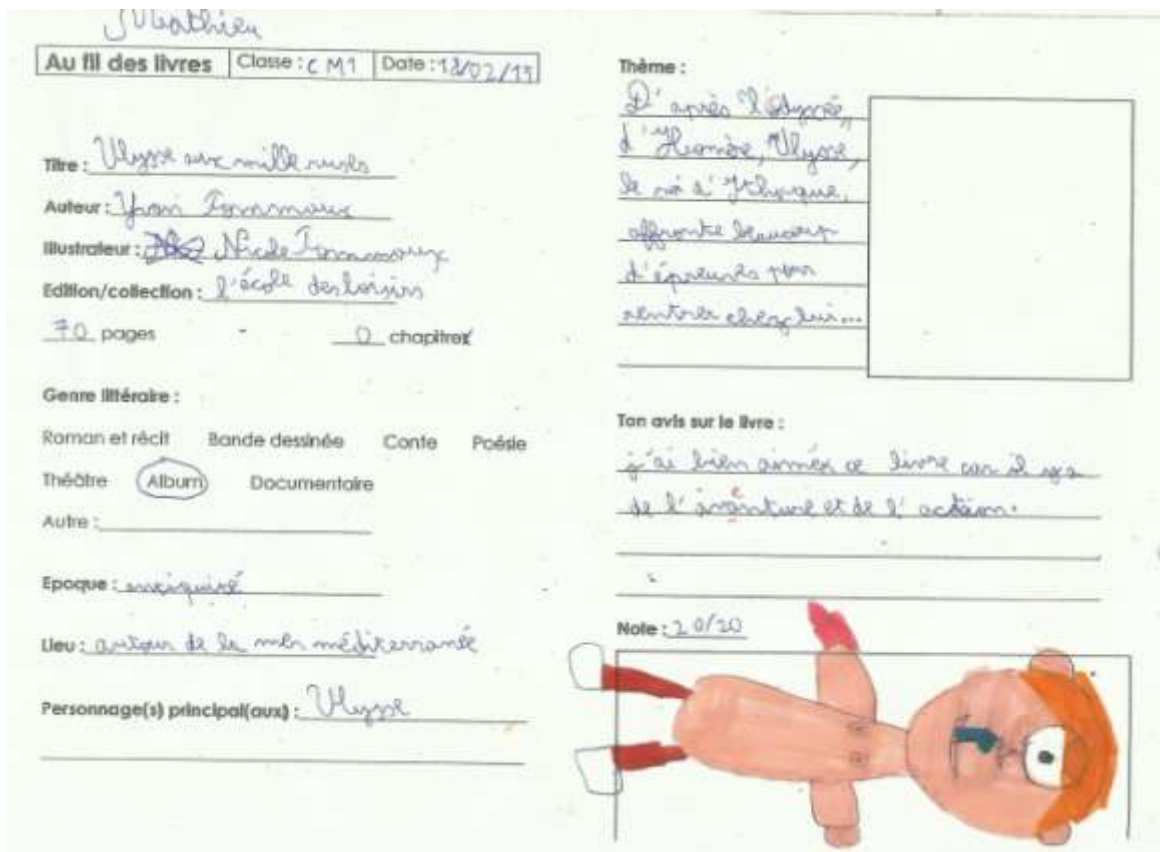 Mathieu
Au fil des livres Classe : CM1 Date : 18/02/19
Titre : Ulysse aux mille ruses
Auteur : Yvan Pommaux
Illustrateur : Nicole Pommaux
Edition/collection : l'école des loisirs
70 pages - 0 chapitre
Genre littéraire :
Roman et récit Bande dessinée Conte Poésie
Théâtre Album Documentaire
Autre :
Epoque :
Lieu : autour de la mer méditerranée
Personnage(s) principal(aux) : Ulysse
Thème :
D'après l'Odyssée,
d'Homère, Ulysse,
le roi d'Ithaque,
affronte beaucoup
d'épreuves pour
rentrer chez lui...
Ton avis sur le livre :
j'ai bien aimé ce livre car il y a
de l'aventure et de l'action.
Note : 20/20